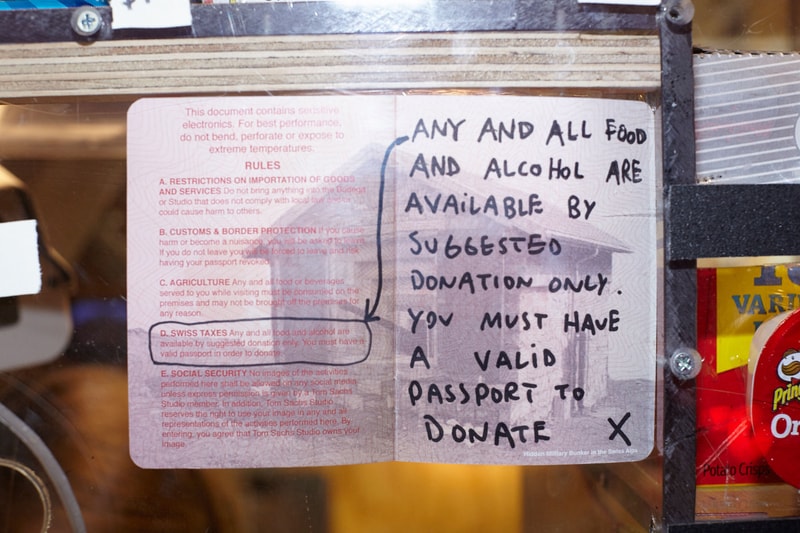 This document contains sensitive
electronics. For best performance,
do not bend, perforate or expose to
extreme temperatures.
RULES
A. RESTRICTIONS ON IMPORTATION OF GOODS
AND SERVICES Do not bring anything into the
or Studio that does not comply with local
could cause harm to others.
B. CUSTOMS & BORDER PROTECTION If you cause
harm or become a nuisance, you will be asked to leave.
If you do not leave you will be forced to leave and risk
having your passport revoked.
C. AGRICULTURE Any and all food or beverages
served to you while visiting must be consumed on the
premises and may not be brought off the premises for
any reason.
D. SWISS TAXES Any and all food and alcohol are
available by suggested donation only. You must have a
valid passport in order to donate.
E. SOCIAL SECURITY No images of the activities
performed here shall be allowed on any social media
unless express permission is given by a Tom Sachs
Studio member. In addition, Tom Sachs Studio
reserves the right to use your image in any and all
representations of the activities performed here. By
entering, you agree that Tom Sachs Studio owns your
image.
ANY AND ALL FOOD
AND ALCOHOL ARE
AVAILABLE BY
SUGGESTED
DONATION ONLY.
YOU MUST HAVE
A VALID
PASSPORT TO
DONATE X
Military Bunker in the Swiss Alps
VARI
Prin
Or
Potato Crisps